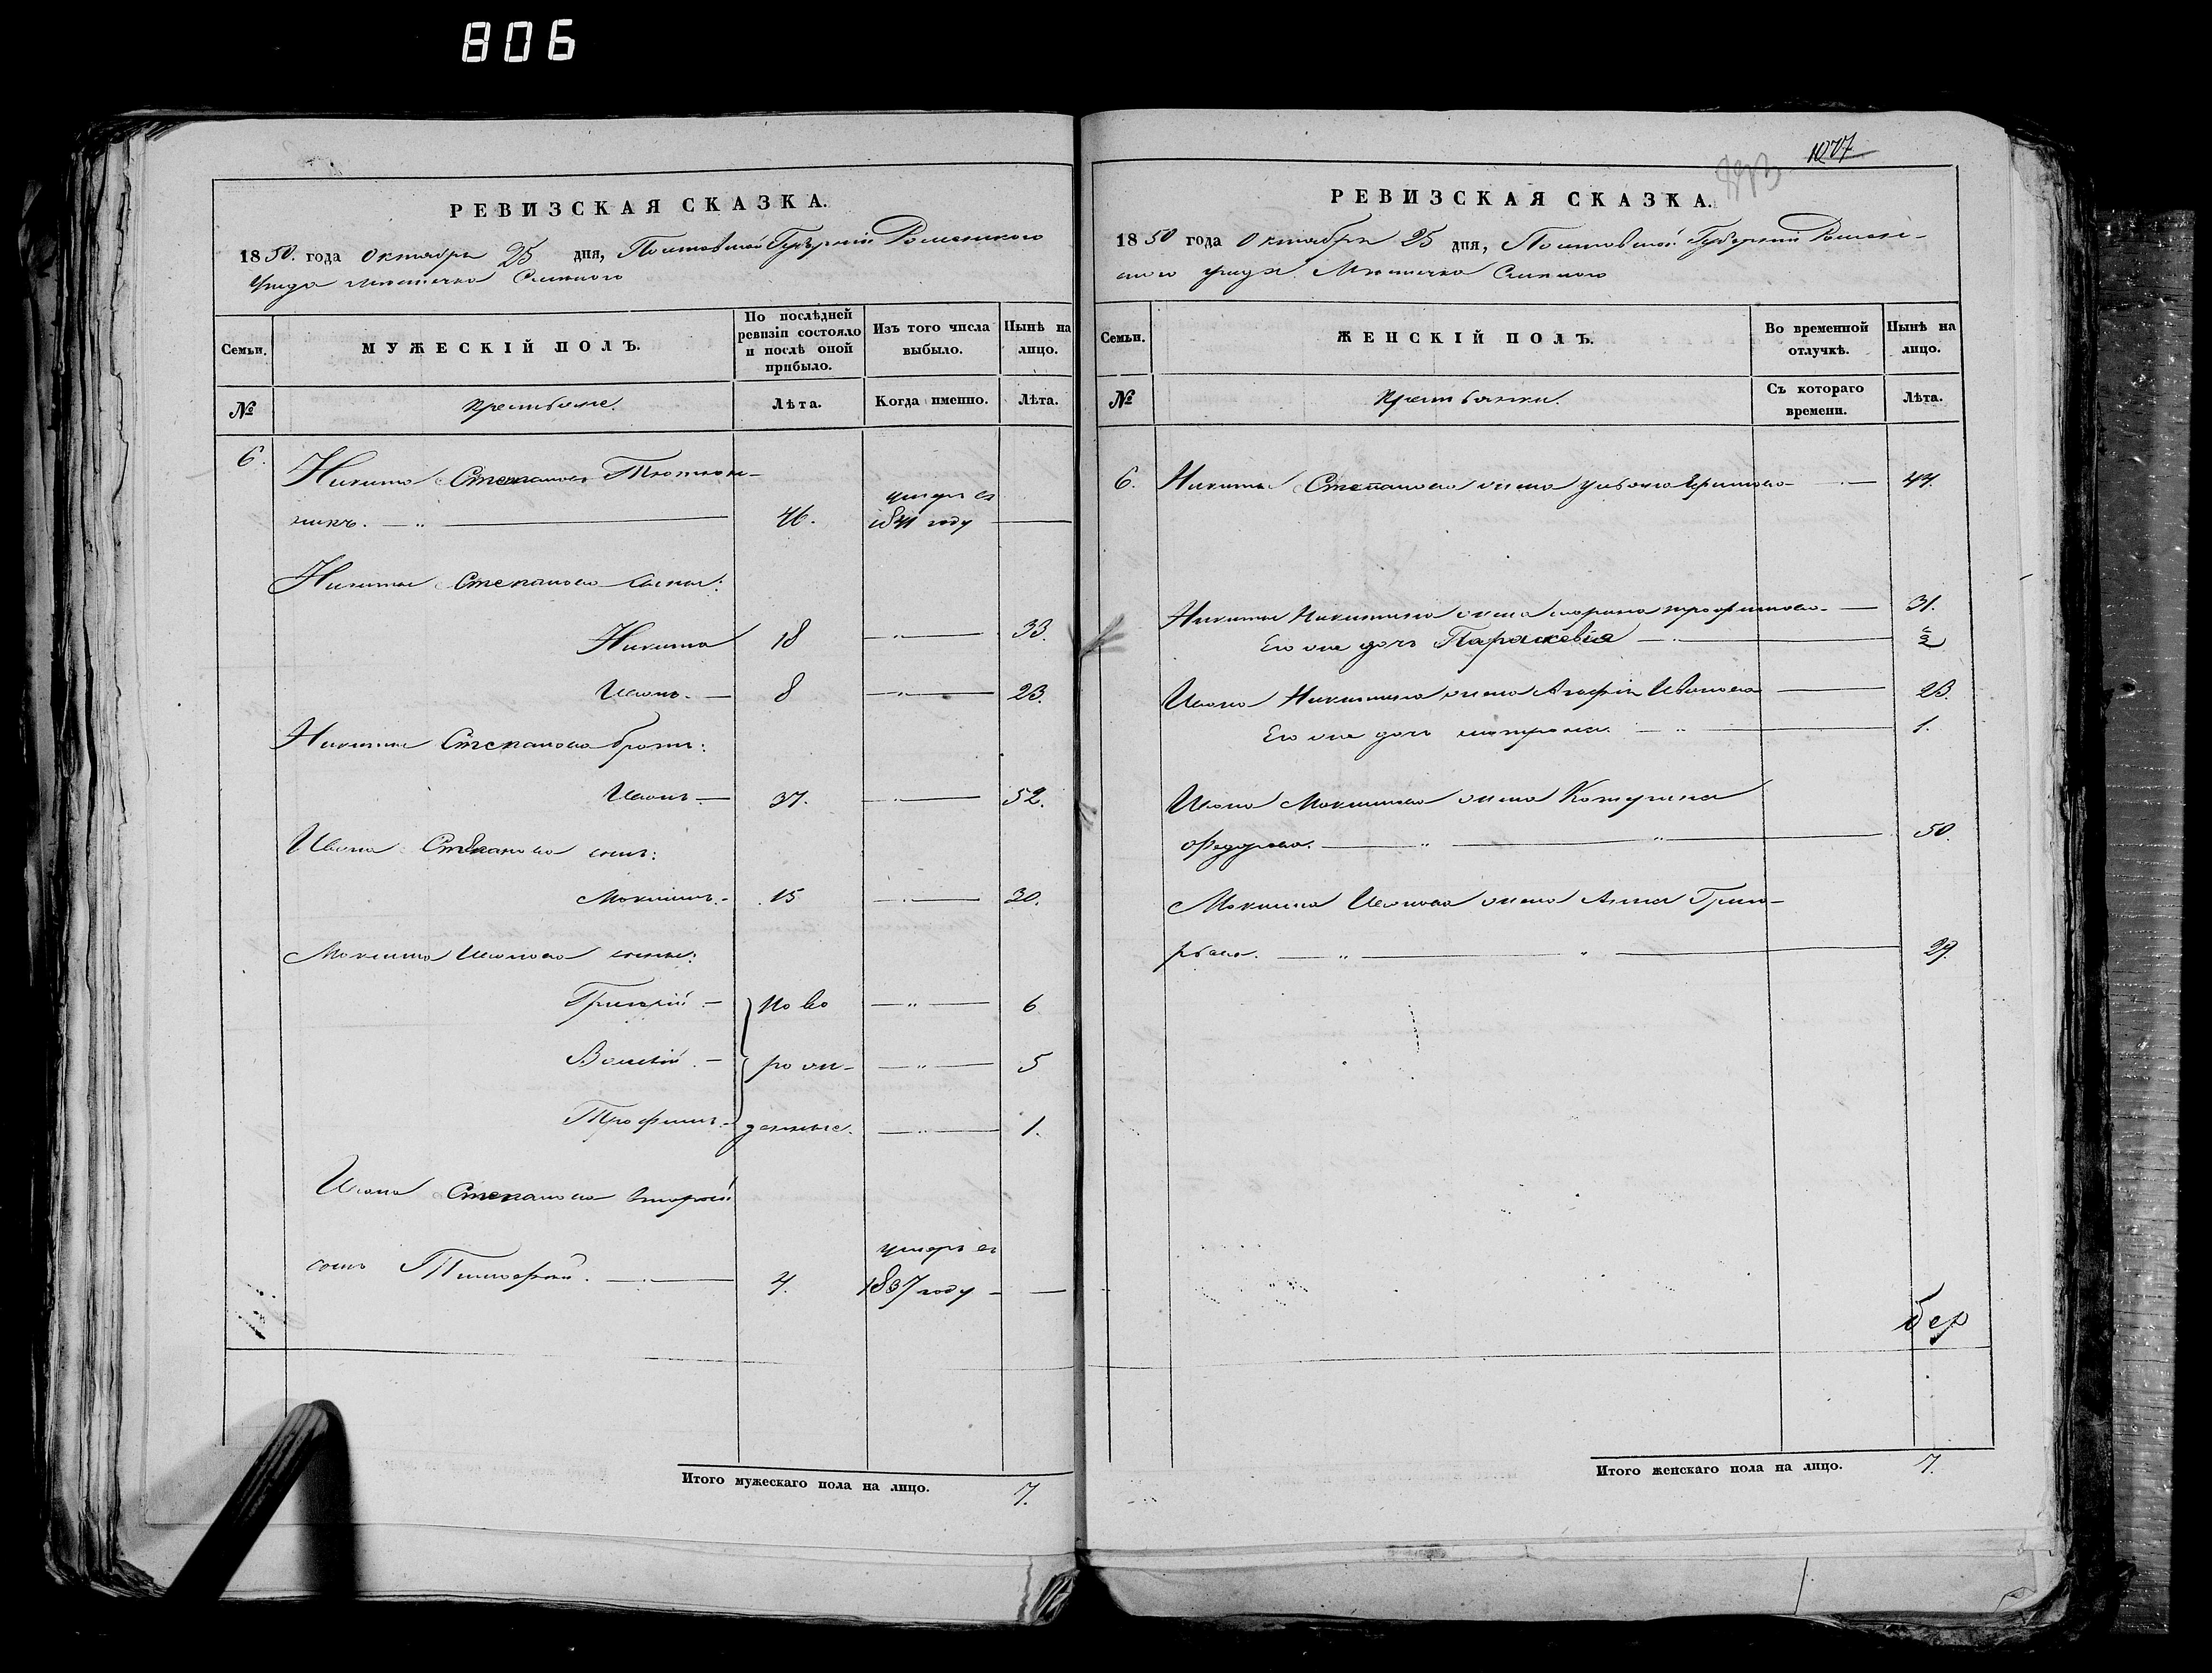 806
РЕВИЗСКАЯ СКАЗКА.
1850. года Октября 25 дня, Полтавской Губерніи Роменскаго
Уезда местечка Смелого
Семьи.
МУЖЕСКІЙ ПОЛЪ.
По послѣдней ревизіи состояло и послѣ оной прибыло.
Изъ того числа выбыло.
Нынѣ на лицо.
№
Крестьяне.
Лѣта.
Когда именно.
Лѣта.
6.
Никита Степановъ Тютюн-
никъ. 46. умеръ въ 1841 году
Никиты Степанова сыны:
Никита 18 33.
Иванъ. 8 23.
Никиты Степанова братъ:
Иванъ 37. 52.
Ивана Степанова сынъ:
Максимъ. 15 30.
Максима Иванова сыны:
Григорій. ново 6
Василій. рож- 5
Трофимъ. денные. 1.
Ивана Степанова вторый
сынъ Тимофей. 4. умеръ въ 1837 году
Итого мужескаго пола на лицо. 7.
1077
РЕВИЗСКАЯ СКАЗКА.
1850 года Октября 25 дня, Полтавской Губерніи Ромен-
скаго уезда Местечка Смелого
Семьи.
ЖЕНСКІЙ ПОЛЪ.
Во временной отлучкѣ.
Нынѣ на лицо.
№
Крестьянки.
Съ котораго времени.
Лѣта.
6. Никиты Степанова жена 44.
Никиты Никитина жена Марина Трофимова 31.
Его же дочь Параскевія
Ивана Никитина жена Агафія Иванова 23.
Его же дочь Матрона. 1.
Ивана жена Катерина
Федорова. 50.
Максима Иванова жена Анна Григо-
рьева. 29.
бер
Итого женскаго пола на лицо. 7.